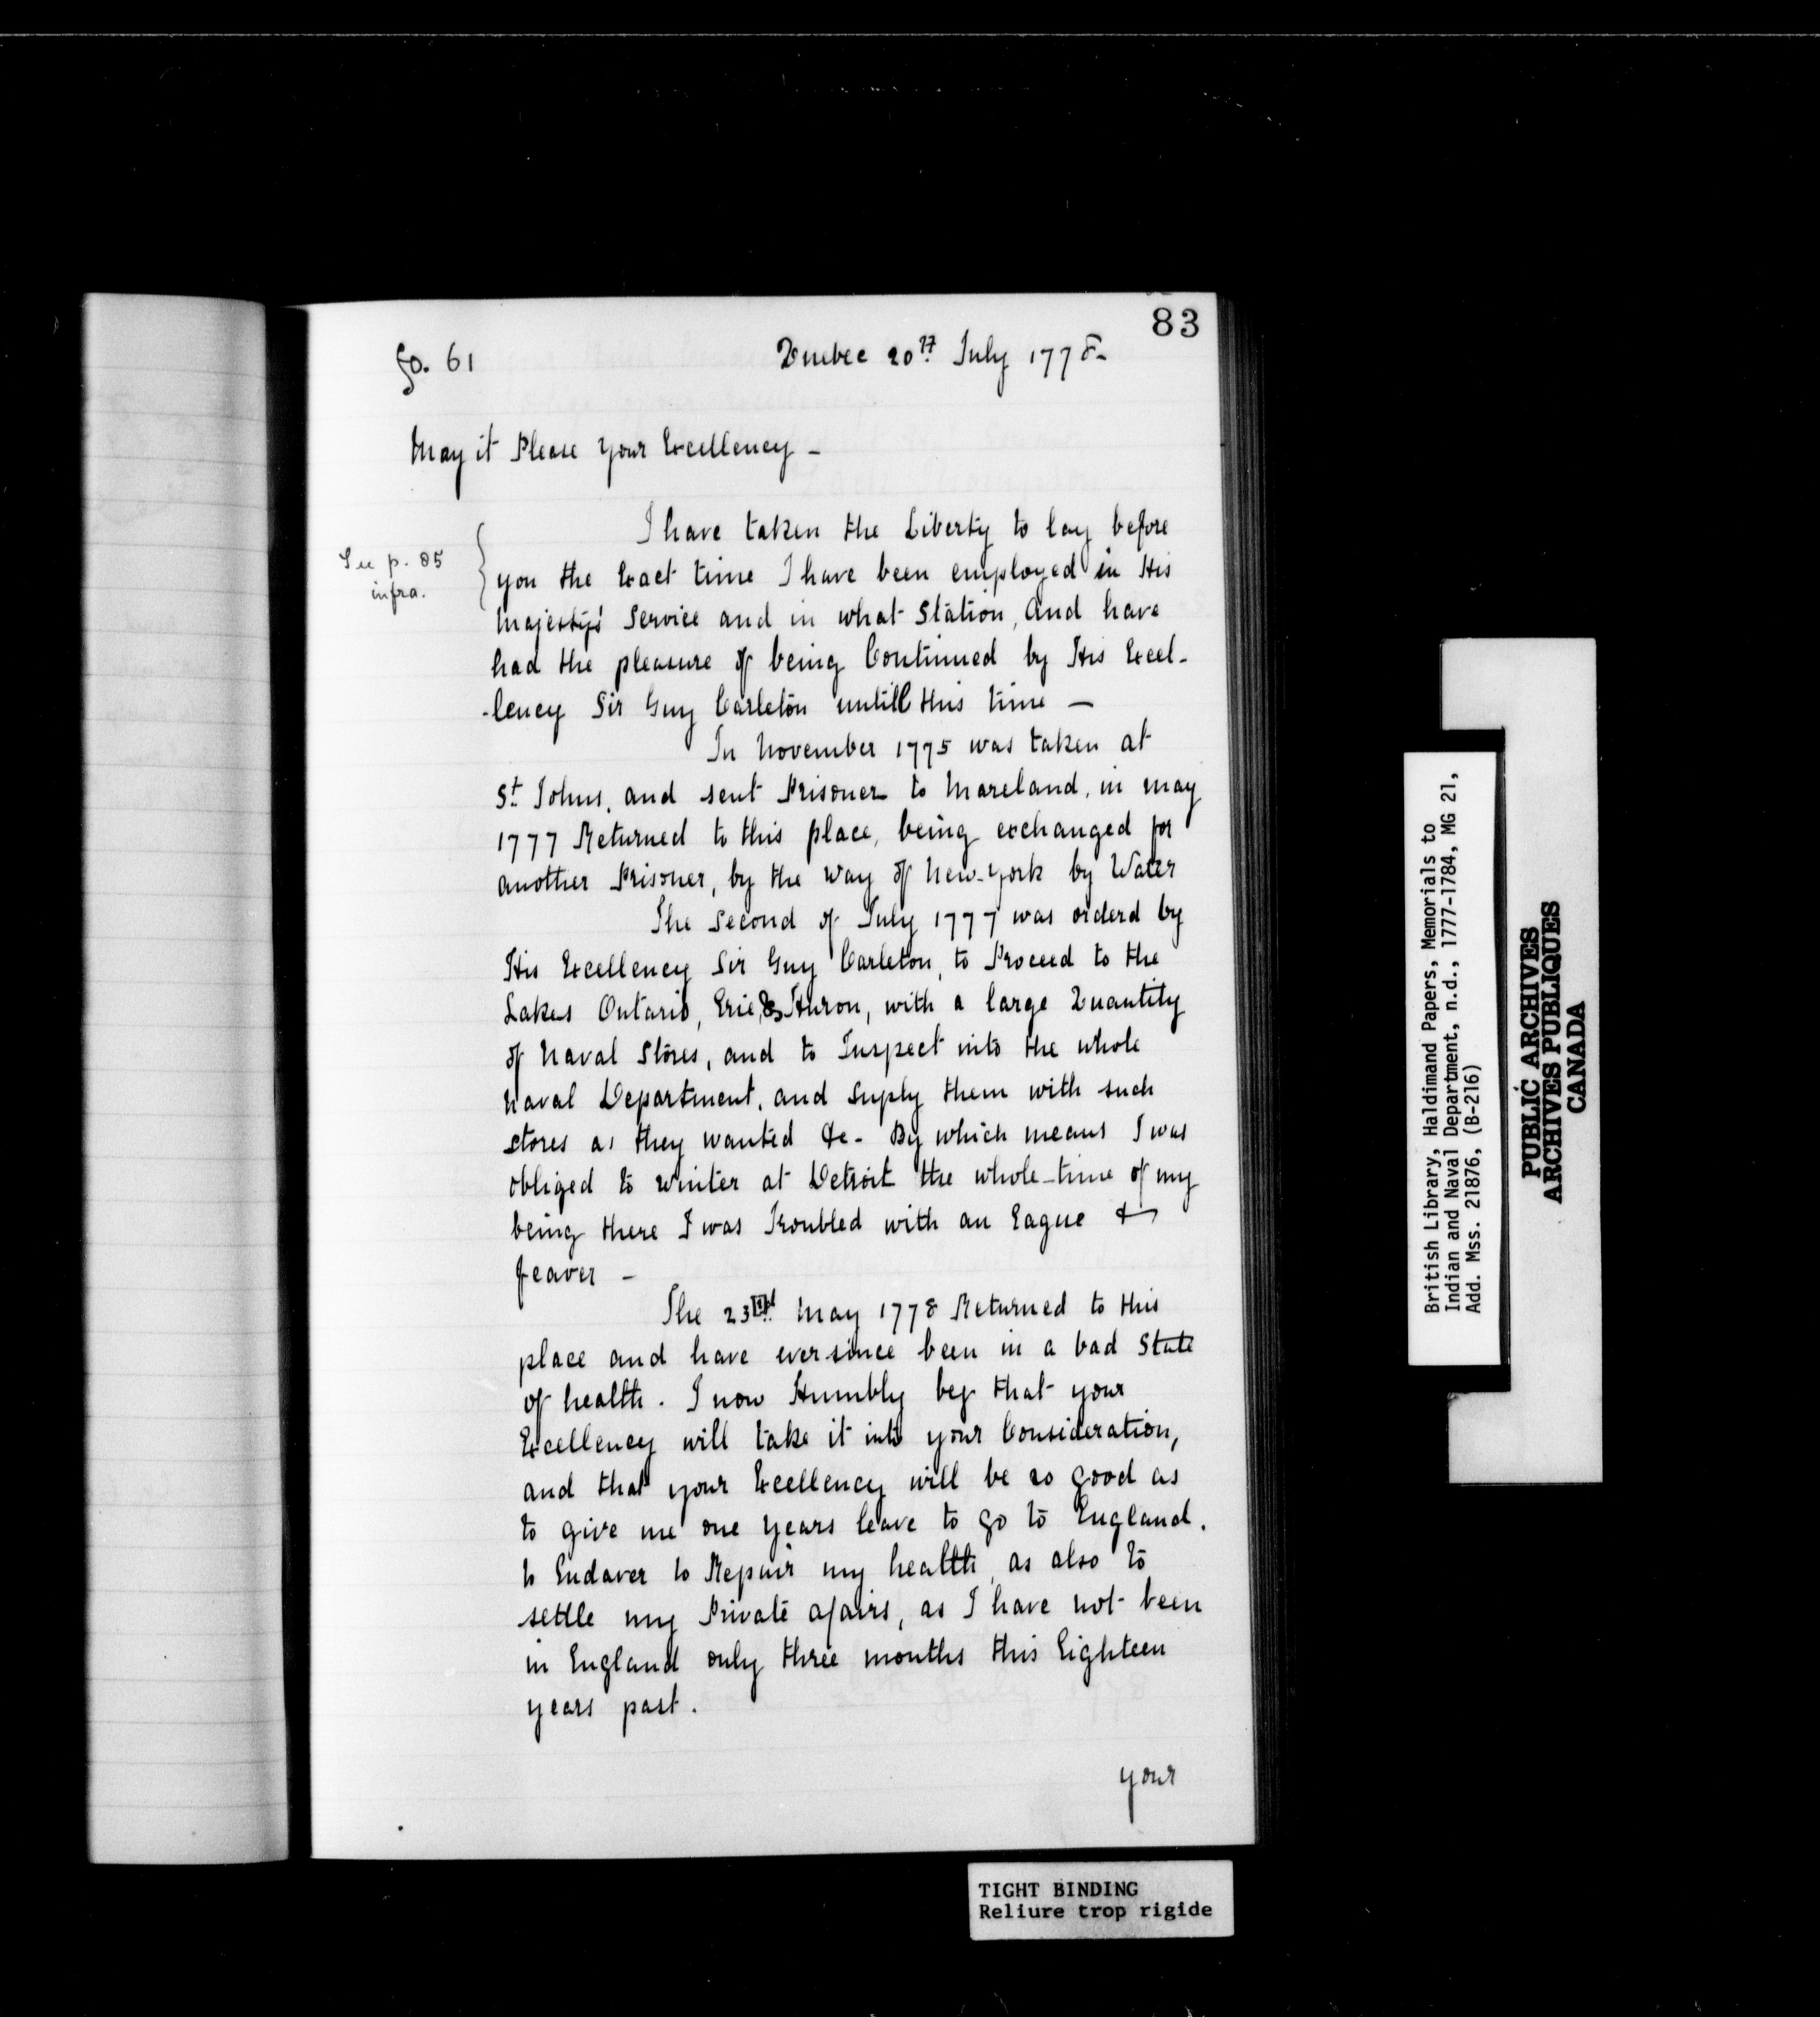 83
fo. 61
Quebec 20th July 1778-
May it Please Your Excellency -
See p. 85
infra.
I have taken the Liberty to lay before
you the Exact time I have been employed in His
Majesty's Service and in what Station, and have
had the pleasure of being Continued by His Excel-
-lency Sir Guy Carleton untill this time —
In November 1775 was taken at
St. Johns, and sent Prisoner to Mareland, in may
1777 Returned to this place, being exchanged for
another Prisoner, by the way of New-york by Water
The Second of July 1777 was orderd by
His Excellency Sir Guy Carleton, to Proceed to the
Lakes Ontario, Erie, & Huron, with a large Quantity
of Naval Stores, and to Inspect into the whole
Naval Department, and Suply them with such
stores as they wanted &c - By which means I was
obliged to winter at Detroit the whole-time of my
being there I was Troubled with an Eague &
feaver -
The 23rd May 1778 Returned to this
place and have ever-since been in a bad State
of health. I now Humbly beg that your
Excellency will take it into your Consideration,
and that your Excellency will be so good as
to give me one years leave to go to England.
to Endaver to Repair my health, as also to
settle my Private afairs, as I have not been
in England only three months this Eighteen
years past.
your
British Library, Haldimand Papers, Memorials to
Indian and Naval Department, n.d., 1777-1784, MG 21,
Add. Mss. 21876, (B-216)
PUBLIC ARCHIVES
ARCHIVES PUBLIQUES
CANADA
TIGHT BINDING
Reliure trop rigide